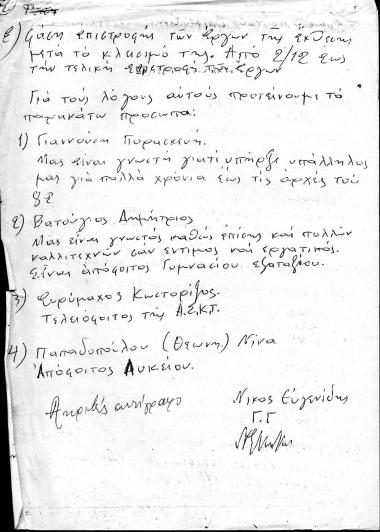 ε) Φάση επιστροφής των έργων της έκθεσης
μετά το κλεισιμό της. Από 2/12 εως
την τελική επιστροφή των έργων
Γιά τούς λόγους αυτούς προτείνουμε τό
παρακάτω προσωπα:
1) Γιαννούση Παρασκευή.
Μας είναι γνωστή γιατί υπήρξε υπάλληλος
μας γιά πολλά χρόνια έως τις αρχές του
82
2) Βατούγιος Δημήτριος
Μάς είναι γνωστός καθώς επίσης και πολλών
καλλιτεχνών σαν έντιμος και εργατικός.
Είναι απόφοιτος Γυμνασίου εξαταξίου.
3) Ευρύμαχος Κωσταρίζος.
Τελειόφοιτος της Α.Σ.Κ.Τ.
4) Παπαδοπούλου (Θεων.) Νίνα
Απόφοιτος Λυκείου.
Ακριβές αντίγραφο
Νίκος Ευγενίδης
Γ.Γ